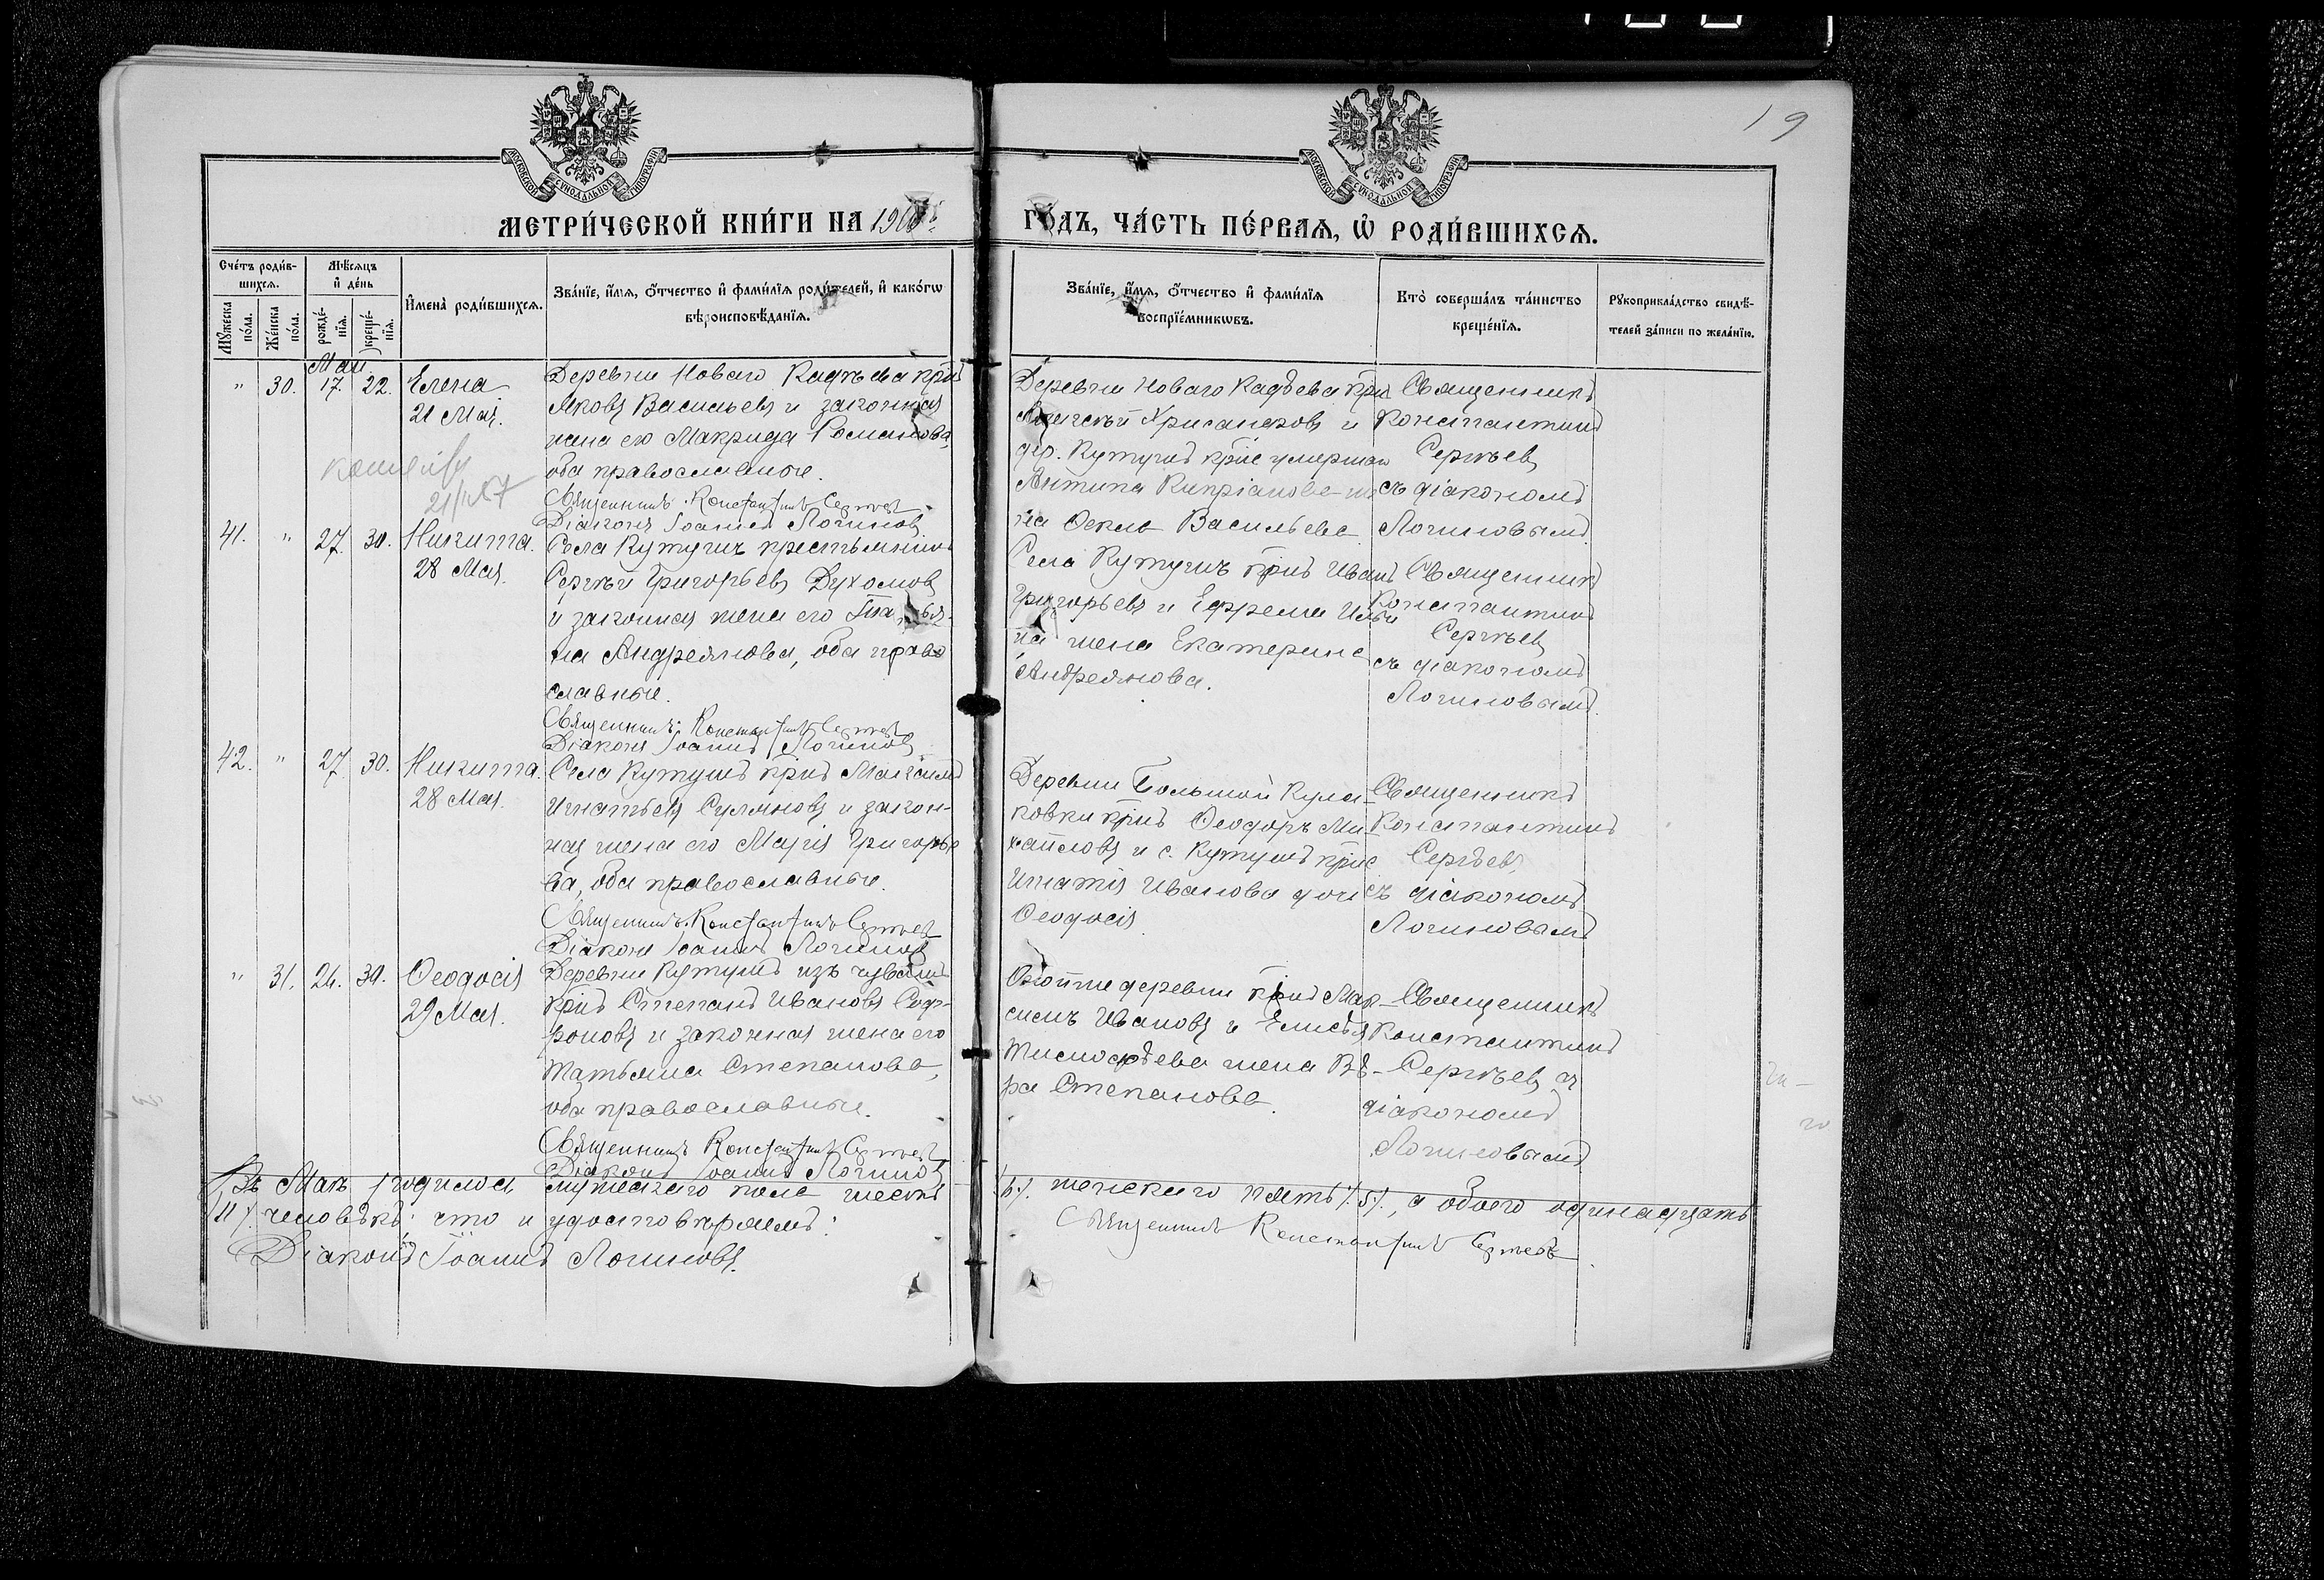 19
МОСКОВСКОЙ СѴНОДАЛЬНОЙ ТИПОГРАФІИ
МОСКОВСКОЙ СѴНОДАЛЬНОЙ ТИПОГРАФІИ
МЕТРИ́ЧЕСКОЙ КНИ́ГИ НА 190
ГО́ДЪ, ЧА́СТЬ ПЕ́РВАѦ, Ѡ҆ РОДИ́ВШИХСѦ.
Сче́тъ роди́в-
шихсѧ.
Мꙋ́жеска
по́ла.
Же́нска
по́ла.
Мѣ́сѧцъ
и҆ де́нь
рожде́-
нїѧ.
креще́-
нїѧ.
И҆мена̀ роди́вшихсѧ.
Зва́нїе, и҆́мѧ, ѻ҆́тчество и҆ фами́лїѧ роди́телей, и҆ како́гѡ
вѣроисповѣ́данїѧ.
Зва́нїе, и҆́мѧ, ѻ҆́тчество и҆ фами́лїѧ
воспрїе́мникѡвъ.
Кто̀ соверша́лъ та́инство
креще́нїѧ.
Рꙋкоприкла́дство свидѣ́-
телей за́писи по жела́нїю.
Май
" 30. 17. 22. Елена
21 Мая.
Деревни Новаго Кадѣева крнъ
Яковъ Васильевъ и законная
жена его Макрида Романова,
оба православные.
Священникъ Константинъ Сергѣевъ
Діаконъ Іоаннъ Логиновъ
Деревни Новаго Кадѣева крнъ
Хрисанфовъ и
дер. Кутушъ крне умершаго
Антипа Кипріанова же-
на Фекла Васильева
Священникъ
Константинъ
Сергѣевъ
съ діакономъ
Логиновымъ.
41. " 27. 30. Никита.
28 Мая.
Села Кутушъ крестьянинъ
Сергѣй Григорьевъ
и законная жена его Татья-
на Андреянова, оба право
славные.
Священникъ: Константинъ Сергѣевъ
Діаконъ Іоаннъ Логиновъ
Села Кутушъ крнъ Иванъ
Григорьевъ и Ефрема Ильи
на жена Екатерина
Андреянова.
Священникъ
Константинъ
Сергѣевъ
съ діакономъ
Логиновымъ.
42. " 27. 30. Никита.
28 Мая.
Села Кутушъ крнъ Михаилъ
Игнатьевъ и закон-
ная жена его Марія Григорье
ва, оба православные.
Священникъ: Константинъ Сергѣевъ
Діаконъ Іоаннъ Логиновъ
Деревни Большой Кула-
ковки крнъ Ѳеодоръ Ми-
хайловъ и с. Кутушъ крне
Игнатія Иванова дочь
Ѳеодосія.
Священникъ
Константинъ
Сергѣевъ
съ діакономъ
Логиновымъ
" 31. 24. 30. Ѳеодосія
29 Мая.
Деревни Кутушъ изъ чувашъ
крнъ Степанъ Ивановъ Соф-
роновъ и законная жена его
Татьяна Степанова,
оба православные.
Священникъ Константинъ Сергѣевъ
Діаконъ Іоаннъ Логиновъ
деревни крнъ Мак-
симъ Ивановъ и
Тимоѳеева жена Вѣ-
ра Степанова.
Священникъ
Константинъ
Сергѣевъ съ
діакономъ
Логиновымъ
Въ Маѣ родилось мужескаго пола шесть /6/. женскаго пять /5/., а обоего одинадцать
/11/. человѣкъ; что и удостовѣряемъ:
Священникъ Константинъ Сергѣевъ
Діаконъ Іоаннъ Логиновъ.